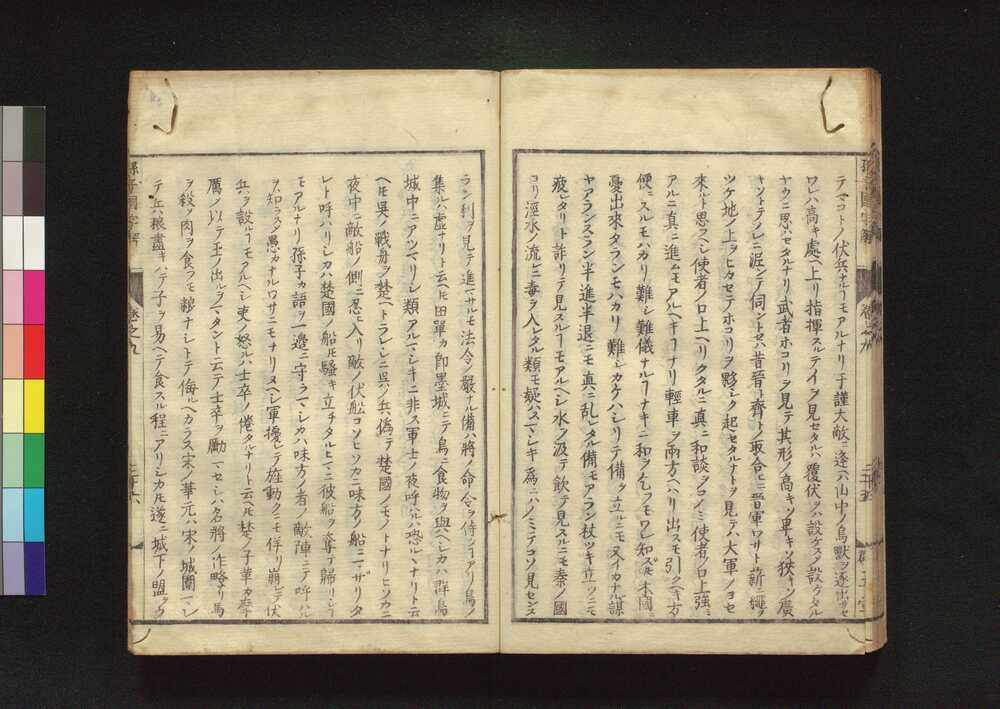 テマコトノ伏兵ナルヿモアルナリ于謹大敵ニ逢ヘハ山中ノ鳥獸ヲ逐出サセ
ワレハ高キ處ヘ上リ指揮スルテイヲ見セタルハ覆伏ヲハ設ケスメ設ケタル
ヤウニ思ハセタルナリ武者ホコリヲ見テ其形ノ高キソ車キソ狹キソ廣
キソトテノレニ泥ンテ伺ントセハ昔晉ト齊ト取合ヒニ晉軍ワサト薪ニ繩ヲ
ツケ地ノ上ヲヒカセテホコリヲ夥シク起セタルナトヲ見テハ大軍ノヨセ
來ルト思フヘシ使者ノ口上ヘリクタルニ真ニ和談ヲコイニ使者ノ口上強ニ
アルニ真ニ進ムモアルヘキヿナリ輕車ヲ兩方ヘハリ出スモ引クヘキ方
便ニスルモハカリ難シ難儀ナルヿナキニ和ヲ乞フモワレ知ズル本國ニ
憂出來タランモハカリ難シカケハシリテ備ヲ立ルニモ又イカナル謀
ヤアランスラン半進半退ニモ真ニ乱レタル備モアラン杖ツキ立ツニモ
疲レタリト詐リテ見スルヿモアルヘシ水ノ汲テ飲テ見スルニモ秦ノ國
コリ涇水ノ流レニ毒ヲ入レタル類モ疑ハスマシキ為ニハノミニテコソ見センス
ラン利ヲ見テ進マサルモ法令ノ嚴ナル備ハ將ノ命令ヲ侍ヿアリ鳥ノ
集ルハ虚ナリト云ヘ𪜈田單カ即墨城ニテ鳥ニ食物ヲ與ヘシカハ群鳥
城中ニアツマリシ類アルマシキニ非ス軍士ノ夜呼ハルハ恐ルヽナリト云
ヘ𪜈吳ノ戰舟ヲ楚ヘトラレシニ吳ノ兵ハ偽テ楚國ノモノトナリヒソカニ
夜中ニ敵船ノ側ニ忍ヒ入リ敵ノ伏船コソヒソカニ味方ノ船ニマザリタ
レト呼ハリシカハ楚國ノ船𪜈騷キ立チタルヒマニ彼船ヲ奪テ歸リシヿ
モアルナリ孫子カ語ヲ一邊ニ守ラマシカハ味方ノ者ノ敵陣ニテ呼ハル
ヲ知ラスメ愚カナルワサニモナリヌヘシ軍擾レテ旌動クニモ佯リ崩レテ伏
兵ヲ設ルヿモアルヘシ吏ノ怒ルハ士卒ノ倦タルナリト云𪜈楚ノ子華カ摩
厲メ以テ王ノ出ルヲマタント云テ士卒ヲ勵マセシハ名將ノ作略ナリ馬
ヲ殺メ肉ヲ食フモ粮ナシトテ侮ルヘカラス宋ノ華元ハ宋ノ城圍マレ
テ兵粮盡キハテ子ヲ易ヘテ食スル程ニアリシカ𪜈遂ニ城下ノ盟ヲ